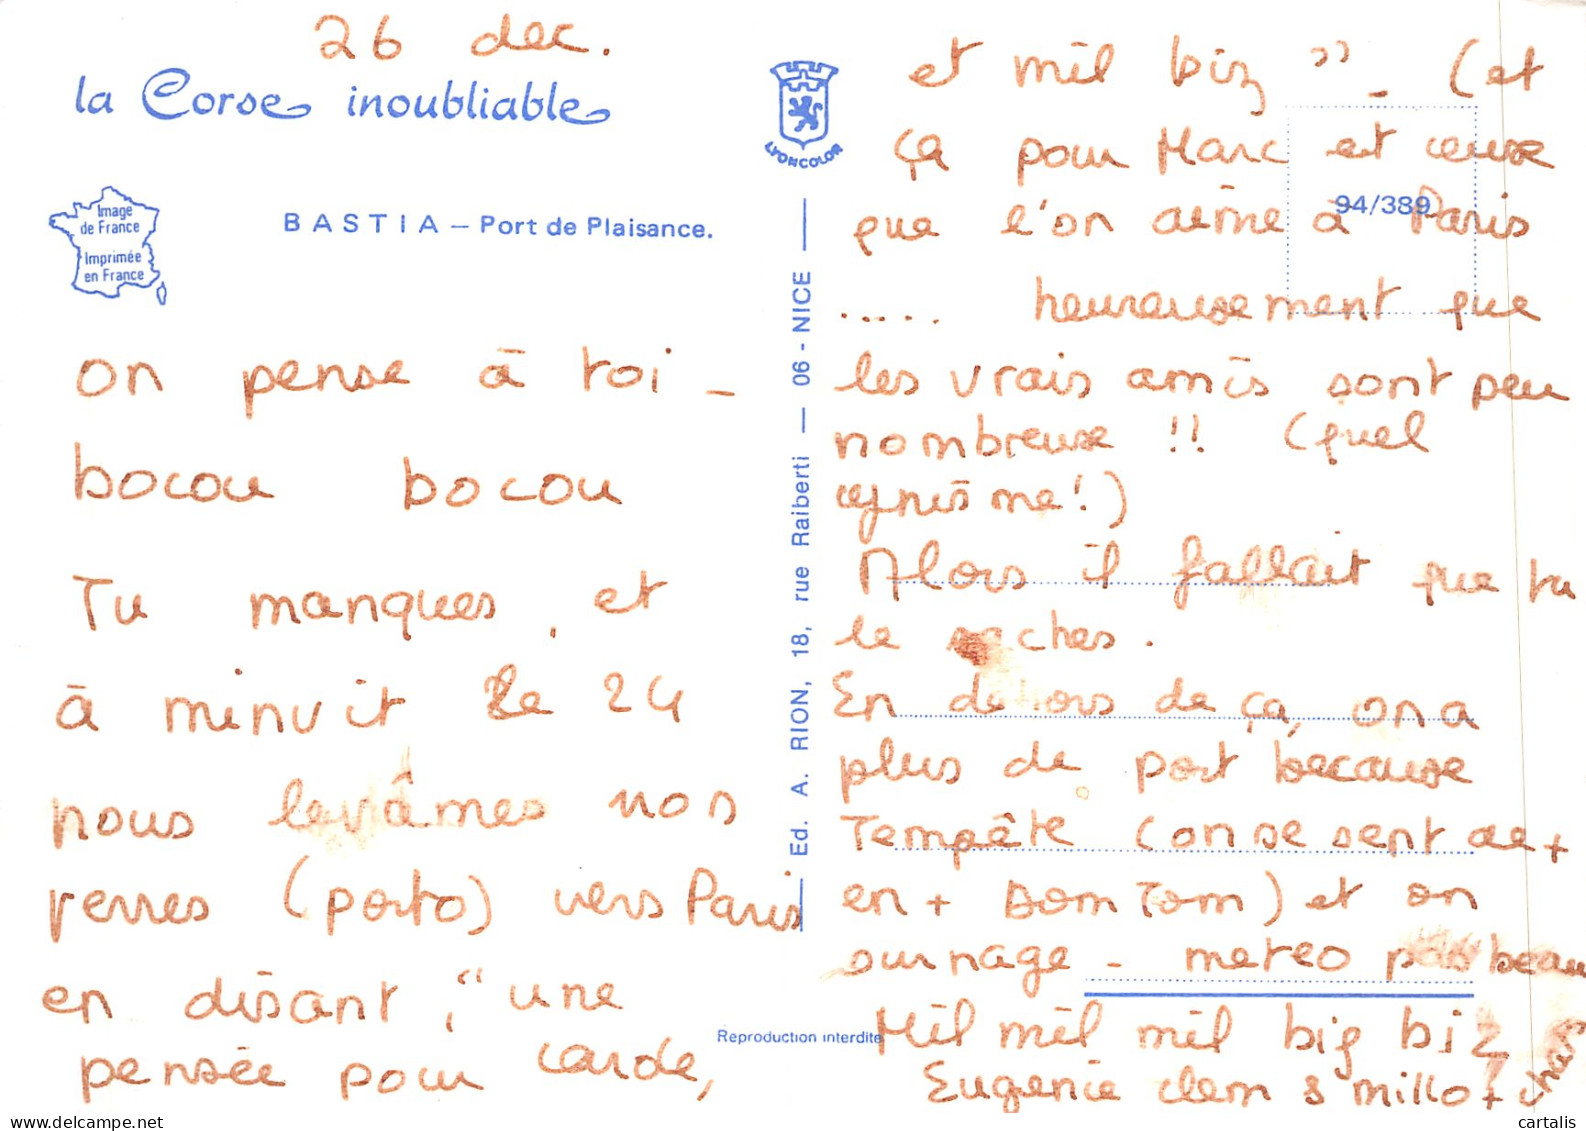 26 dec.
la Corse inoubliable
Image
de France
Imprimée
en France
BASTIA – Port de Plaisance.
on pense à toi –
bocou bocou
Tu manques, et
à minuit le 24
nous levâmes nos
verres (porto) vers Paris
en disant, "une
pensée pour carde,
LYONCOLOR
Ed. A. RION, 18, rue Raiberti — 06 - NICE
Reproduction interdite
94/389
et mil biz" – (et
ça pour Marc et ceuxe
que l'on aime à Paris
..... heureusement que
les vrais amis sont peu
nombreuse !! (quel
cynisme!)
Alors il fallait que tu
le saches.
En dehors de ça, on a
plus de port because
Tempête (on se sent de +
en + Bom Tom) et on
surnage – meteo pas beau
Mil mil mil big biz
Eugenie clem & millo +
delcampe.net
cartalis